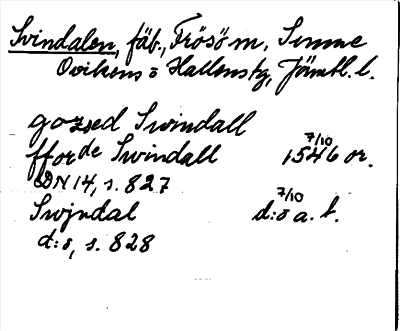 Svindalen, fäb., Frösö m, Sunne
Ovikens o Hallens tg, Jämtl. l.
gozsed Swindall
fforde Swindall 7/10 1546 or.
DN 14, s. 827
Swjndal 7/10 d:o a. t.
d:o, s. 828